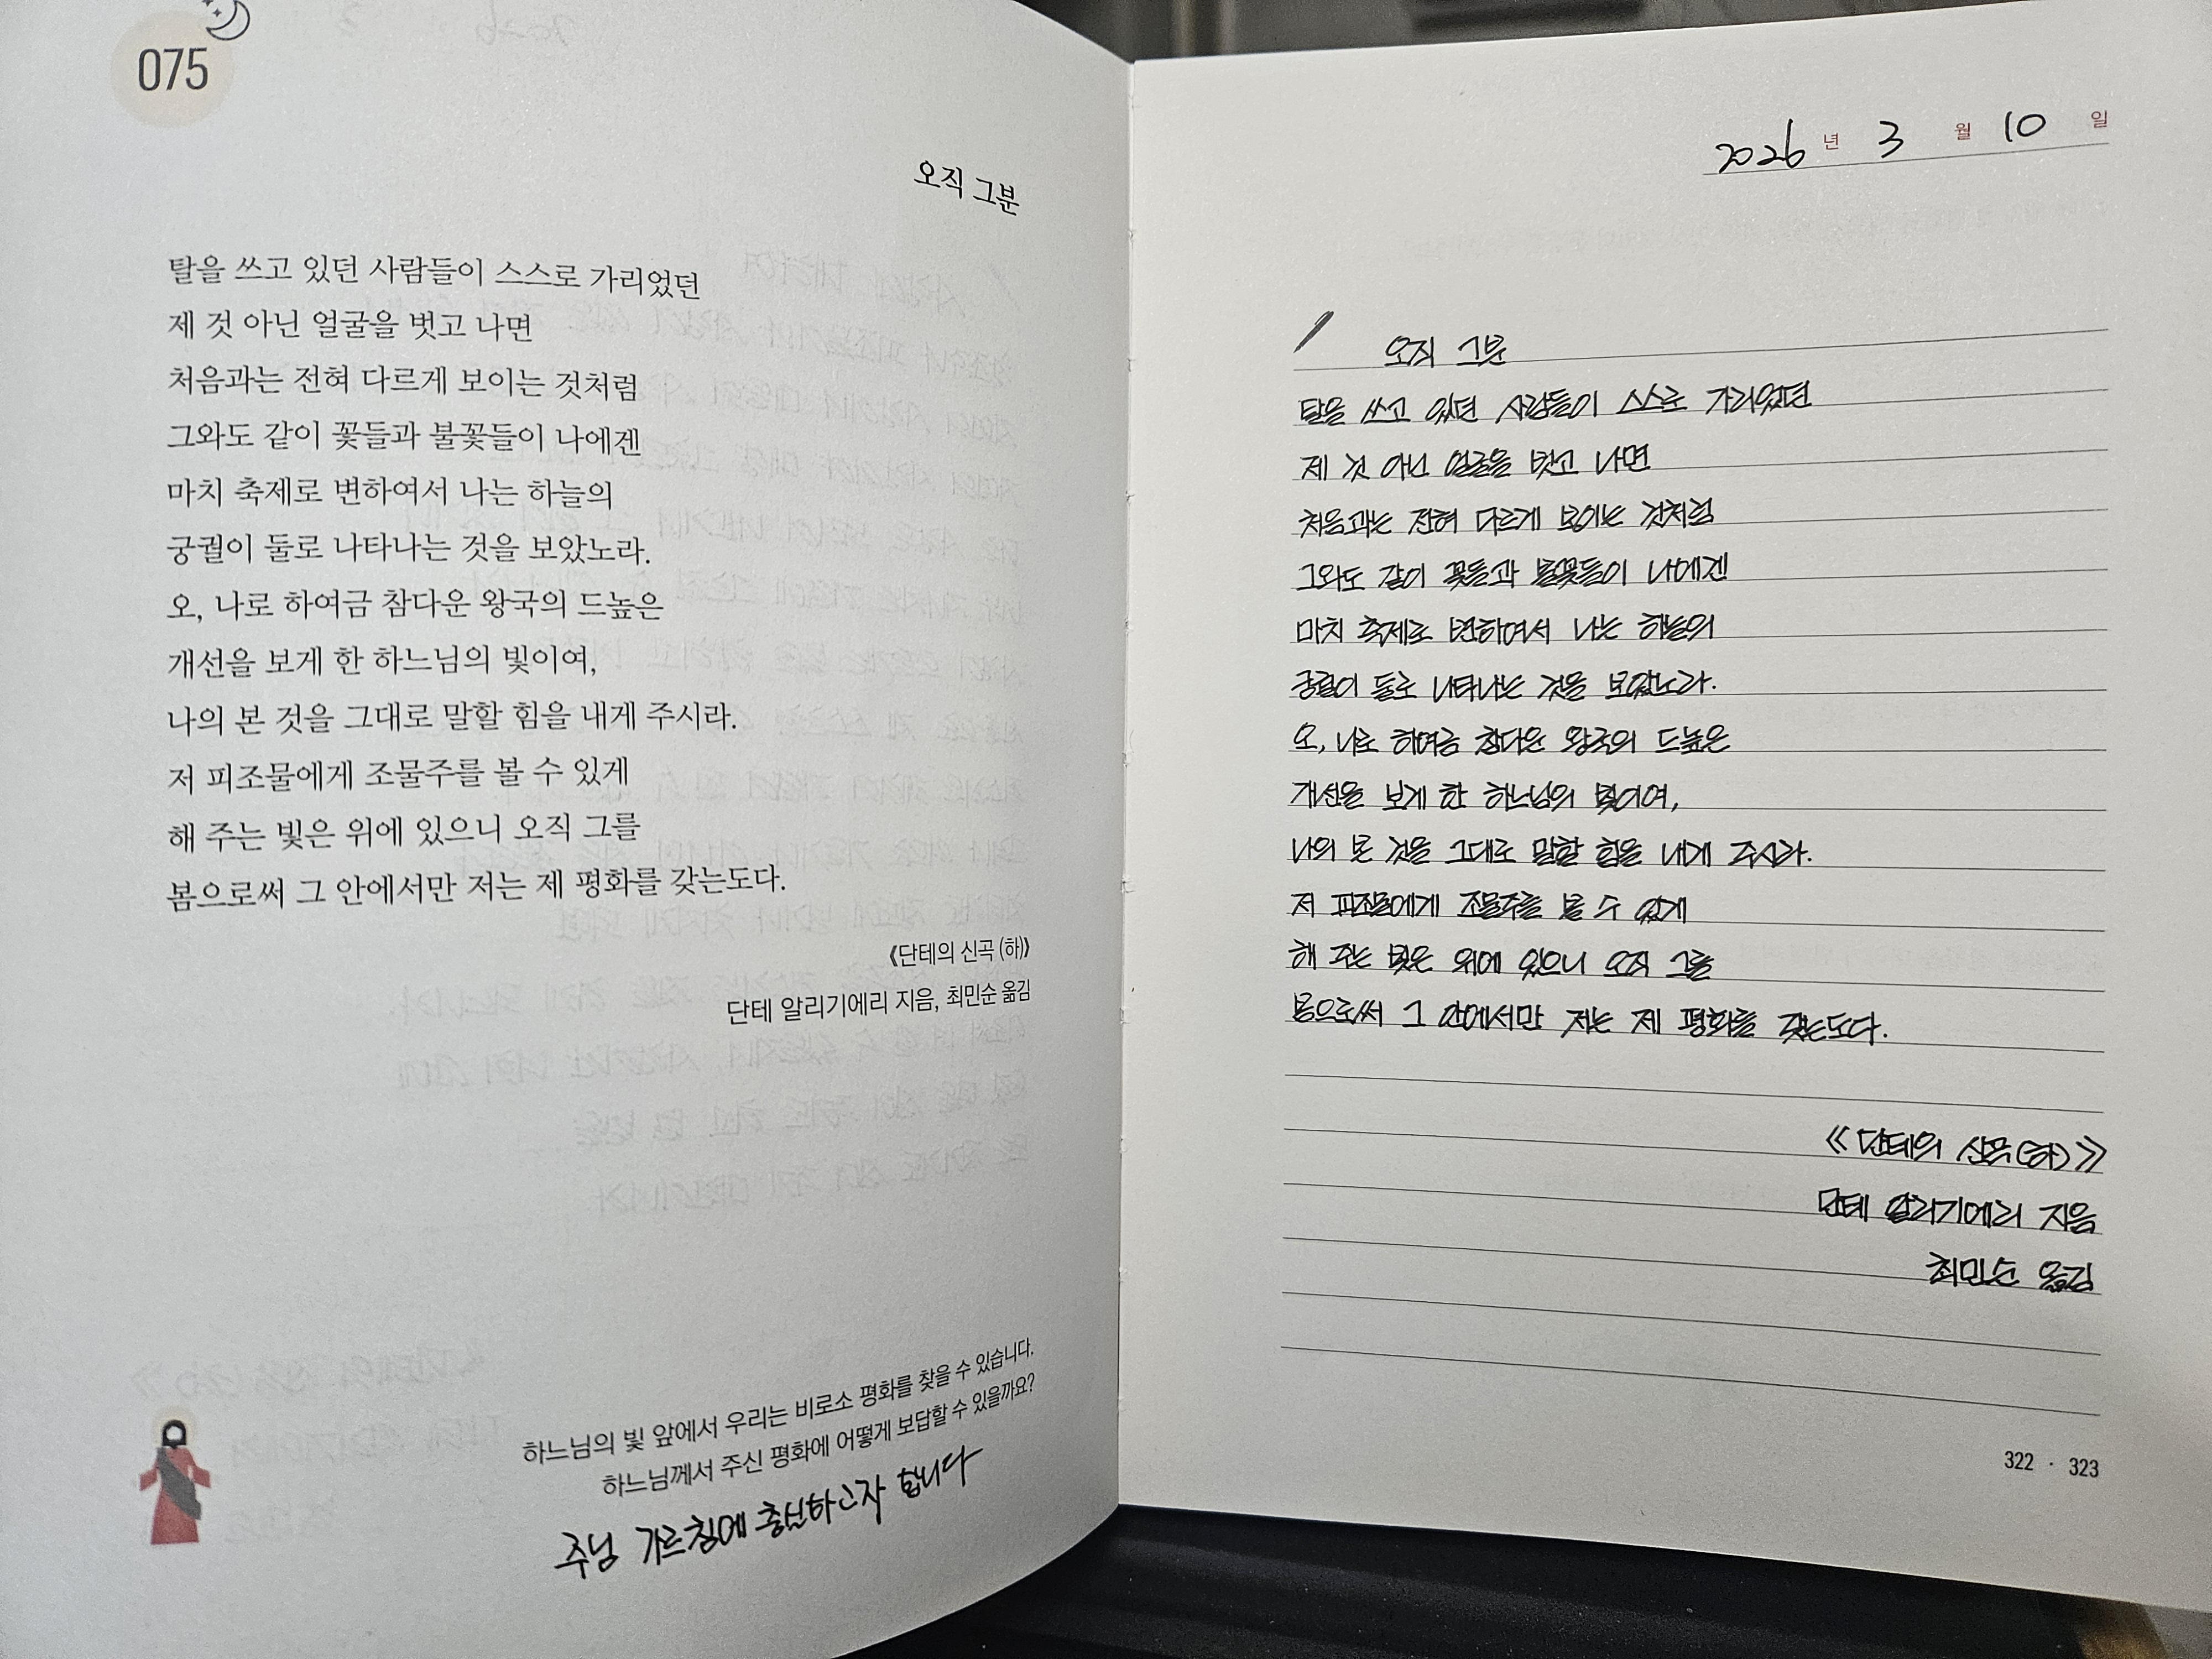 075
오직 그분
탈을 쓰고 있던 사람들이 스스로 가리었던
제 것 아닌 얼굴을 벗고 나면
처음과는 전혀 다르게 보이는 것처럼
그와도 같이 꽃들과 불꽃들이 나에겐
마치 축제로 변하여서 나는 하늘의
궁궐이 둘로 나타나는 것을 보았노라.
오, 나로 하여금 참다운 왕국의 드높은
개선을 보게 한 하느님의 빛이여,
나의 본 것을 그대로 말할 힘을 내게 주시라.
저 피조물에게 조물주를 볼 수 있게
해 주는 빛은 위에 있으니 오직 그를
봄으로써 그 안에서만 저는 제 평화를 갖는도다.
《단테의 신곡 (하)》
단테 알리기에리 지음, 최민순 옮김
하느님의 빛 앞에서 우리는 비로소 평화를 찾을 수 있습니다.
하느님께서 주신 평화에 어떻게 보답할 수 있을까요?
주님 가르침에 충실하고자 합니다
2026 년 3 월 10 일
오직 그분
탈을 쓰고 있던 사람들이 스스로 가리었던
제 것 아닌 얼굴을 벗고 나면
처음과는 전혀 다르게 보이는 것처럼
그와도 같이 꽃들과 불꽃들이 나에겐
마치 축제로 변하여서 나는 하늘의
궁궐이 둘로 나타나는 것을 보았노라.
오, 나로 하여금 참다운 왕국의 드높은
개선을 보게 한 하느님의 빛이여,
나의 본 것을 그대로 말할 힘을 내게 주시라.
저 피조물에게 조물주를 볼 수 있게
해 주는 빛은 위에 있으니 오직 그를
봄으로써 그 안에서만 저는 제 평화를 갖는도다.
《단테의 신곡(하)》
단테 알리기에리 지음
최민순 옮김
322 · 323